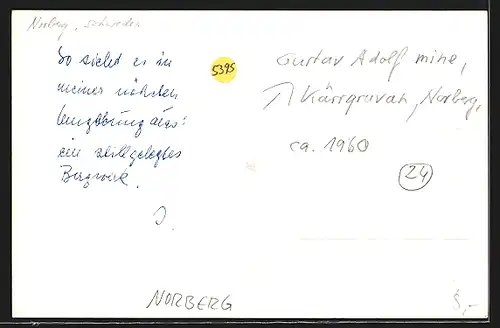 Norberg, Schweden
So sieht es in
meiner nächsten
Umgebung aus:
ein stillgelegtes
Bergwerk.
J.
5395
Gustav Adolf mine,
↗ Kärrgruvan, Norberg,
ca. 1960
24
NORBERG